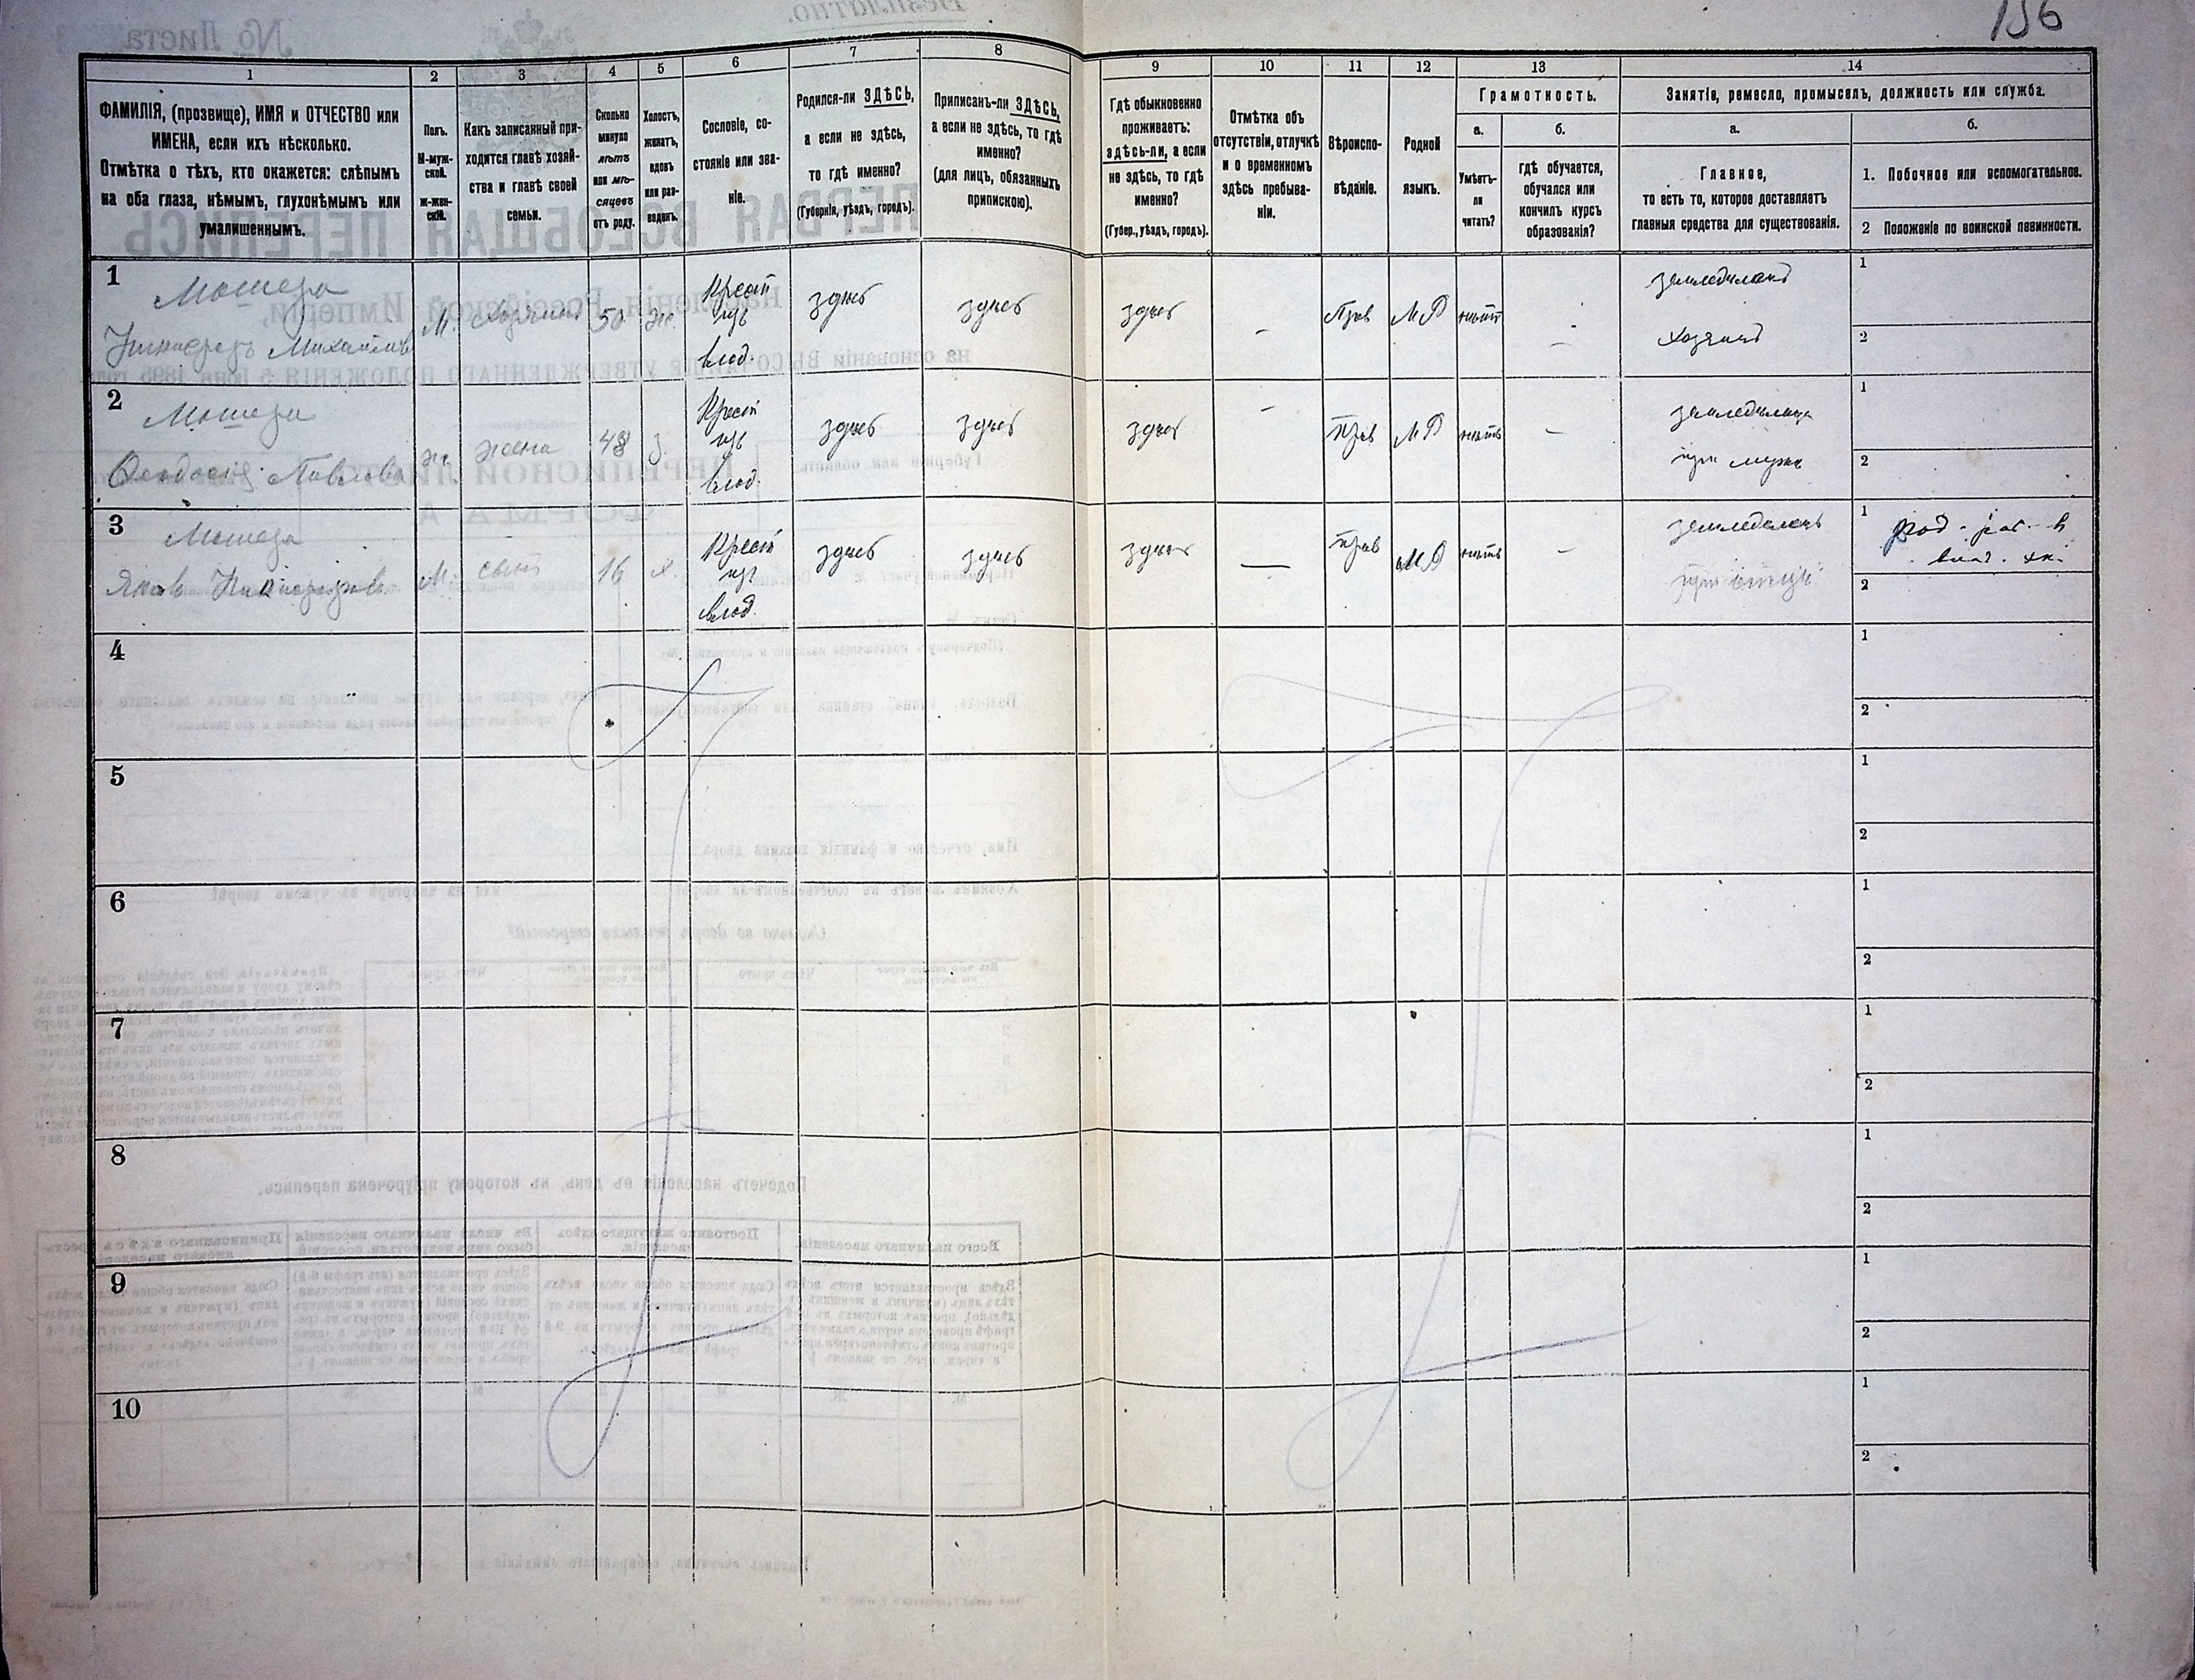 156
1
2
3
4
5
6
7
8
9
10
11
12
13
14
ФАМИЛІЯ, (прозвище), ИМЯ и ОТЧЕСТВО или
ИМЕНА, если ихъ нѣсколько.
Отмѣтка о тѣхъ, кто окажется: слѣпымъ
на оба глаза, нѣмымъ, глухонѣмымъ или
умалишеннымъ.
Полъ.
М-муж-
ской.
ж-жен-
скій.
Какъ записанный при-
ходится главѣ хозяй-
ства и главѣ своей
семьи.
Сколько
минуло
лѣтъ
или мѣ-
сяцевъ
отъ роду.
Холостъ,
женатъ,
вдовъ
или раз-
веденъ.
Сословіе, со-
стояніе или зва-
ніе.
Родился-ли ЗДѢСЬ,
а если не здѣсь,
то гдѣ именно?
(Губернія, уѣздъ, городъ).
Приписанъ-ли ЗДѢСЬ,
а если не здѣсь, то гдѣ
именно?
(для лицъ, обязанныхъ
припискою).
Гдѣ обыкновенно
проживаетъ:
здѣсь-ли, а если
не здѣсь, то гдѣ
именно?
(Губер., уѣздъ, городъ).
Отмѣтка объ
отсутствіи, отлучкѣ
и о временномъ
здѣсь пребыва-
ніи.
Вѣроиспо-
вѣданіе.
Родной
языкъ.
Грамотность.
а.
Умѣетъ-
ли
читать?
б.
гдѣ обучается,
обучался или
кончилъ курсъ
образованія?
Занятіе, ремесло, промыселъ, должность или служба.
а.
Главное,
то есть то, которое доставляетъ
главныя средства для существованія.
б.
1. Побочное или вспомогательное.
2 Положеніе по воинской повинности.
1
Михайловъ
М.
Хозяинъ
50
ж.
Крест
изъ
влад.
здѣсь
здѣсь
здѣсь
-
Прав
МР
нѣтъ
-
земледѣлецъ
хозяинъ
1
2
2
Феодосія Павлова
ж.
жена
48
з.
Крест
изъ
влад.
здѣсь
здѣсь
здѣсь
-
прав
МР
нѣтъ
-
земледѣлица
при мужѣ
1
2
3
Яковъ
М.
сынъ
16
х.
Крест
изъ
влад.
здѣсь
здѣсь
здѣсь
—
прав
МР
нѣтъ
-
земледѣлецъ
при отцѣ
1
2
4
1
2
5
1
2
6
1
2
7
1
2
8
1
2
9
1
2
10
1
2